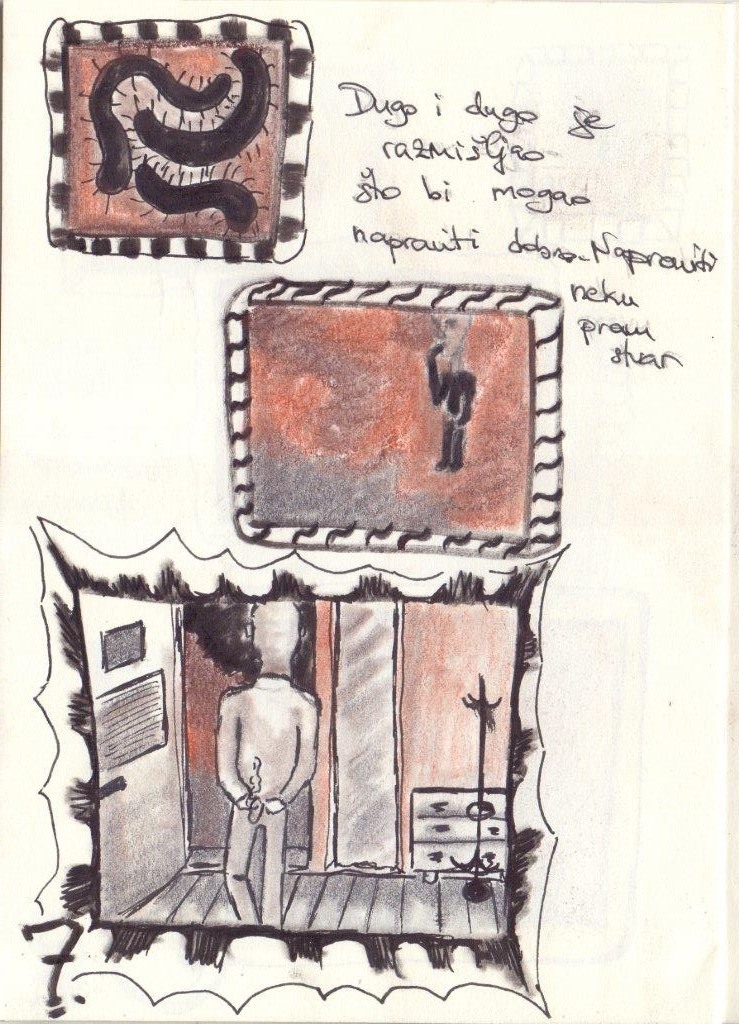 Dugo i dugo je
razmišljao
što bi mogao
napraviti dobro. Napraviti
neku
pravu
stvar
7.